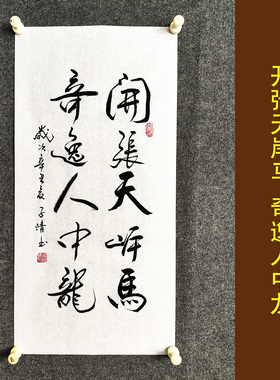 開張天岸馬
奇逸人中龍
歲次辛丑夏子靖书
开张天岸马 奇逸人中龙